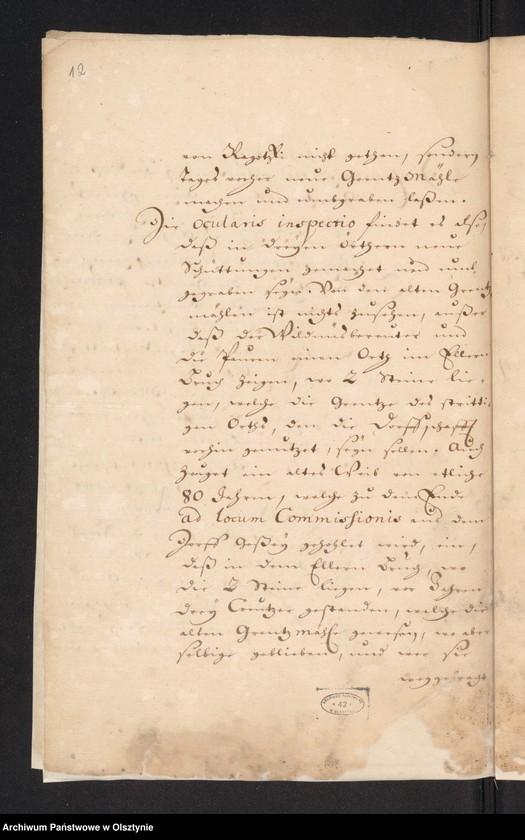 12
von Ragotzki nicht gethan, sondern
Tages vorher neue Grentz Mähle
machen und umbgraben laßen.
Die Ocularis inspectio findet es also,
daß in dreyen Örthern neue
Schüttungen gemachet und umb
gegraben seyn. Von den alten Grentz
mählen ist nichts zusehen, außer
daß der Wildnüsbereuter und
die Pauern einen Orth im Ellern
Bruch zeigen, wo 2 Steine lie-
gen, welche die Grentze des stritti-
gen Orths, den die Dorffschafft
vorhin genutzet, seyn sollen. Auch
zeuget ein altes Weib von etliche
80 Jahren, welche zu dem Ende
ad locum Commissionis aus dem
Dorff gehohlet wird, ein,
daß in dem Ellern Bruch, wo
die 2 Steine liegen, vor Jahren
drey Creutzer gestanden, welche die
alten Grentz Mähle gewesen, wo aber
selbige geblieben, und wer sie
weggebracht
42
Archiwum Państwowe w Olsztynie